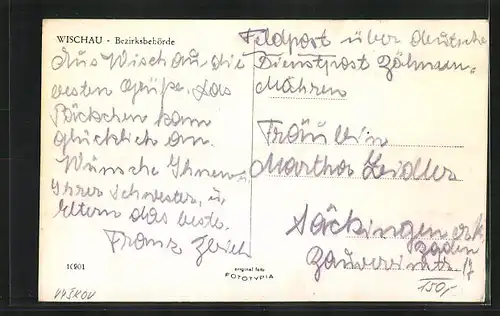 WISCHAU - Bezirksbehörde
Aus Wischau die
besten Grüße. Das
Päckchen kam
glücklich an.
Wünsche Ihnen u.
Ihrer Schwester, u.
Eltern das beste.
Franz
Feldpost über deutsche
Dienstpost Böhmen-
Mähren
Fräulein
Martha Zeidler
Säckingen
Baden
17
150,-
10901
original foto
FOTOTYPIA
VYŠKOV